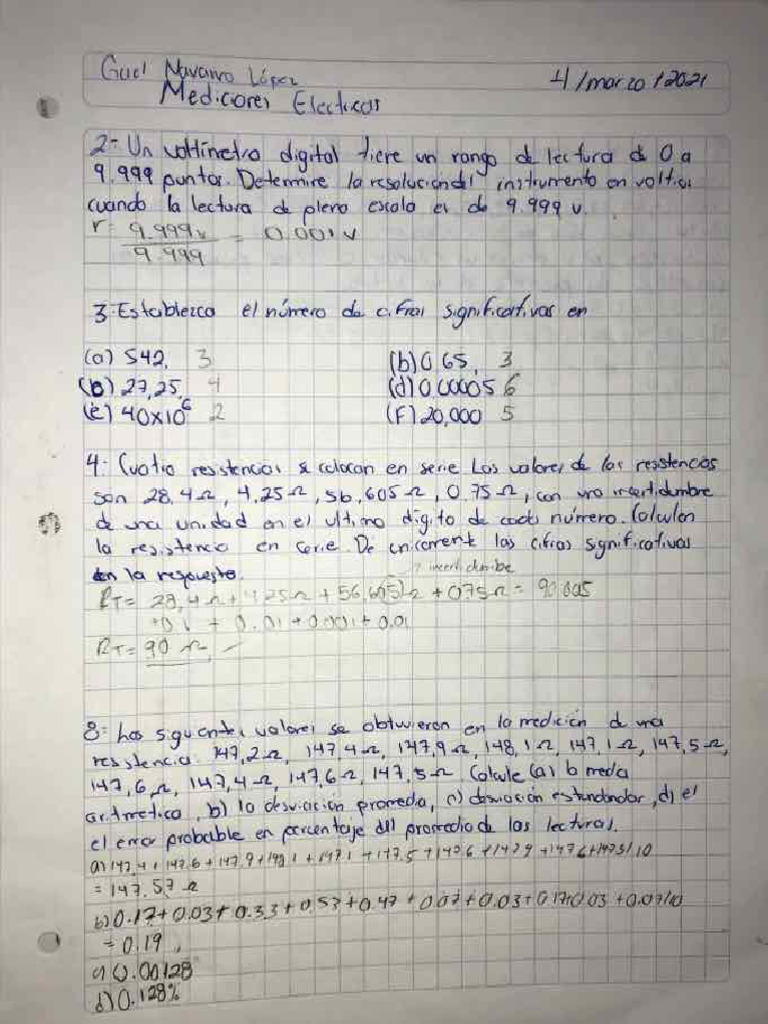 Gael Navarro López 4/marzo/2021
Mediciones Electricas
2- Un voltímetro digital tiene un rango de lectura de 0 a
9.999 puntos. Determine la resolución del instrumento en voltios
cuando la lectura de pleno escala es de 9.999 v.
r = 9.999v / 9.999 = 0.001v
3- Establezca el número de cifras significativas en
(a) 542, 3 (b) 0.65, 3
(b) 27,25, 4 (d) 0,00005 6
(e) 40x10⁶ 2 (F) 20,000 5
4- Cuatro resistencias se colocan en serie Los valores de las resistencias
son 28,4Ω, 4,25Ω, 56,605Ω, 0,75Ω, con una incertidumbre
de una unidad en el ultimo digito de cada número. Calculen
la resistencia en serie. De en corriente las cifras significativas
en la repuesta.
? incertidumbe
RT= 28,4Ω + 4,25Ω + 56,605Ω + 075Ω = 90.005
+0.1 + 0.01 + 0.001 + 0.01
RT= 90 Ω
8- Los siguientes valores se obtuvieron en la medición de una
resistencia 147,2Ω, 147,4Ω, 147,9Ω, 148,1Ω, 147,1Ω, 147,5Ω,
147,6Ω, 147,4Ω, 147,6Ω, 147,5Ω Calcule (a) la media
aritmetica, b) la desviación promedia, c) desviación estandandar, d) el
el error probable en porcentaje del promedio de las lecturas.
a) 147,4 + 147.6 + 147,9 + 148,1 + 147,1 + 147,5 + 147,6 + 147,9 + 147,6 + 147,5/10
= 147.57 Ω
b) 0.17 + 0.03 + 0.33 + 0.53 + 0.47 + 0.07 + 0.03 + 0.17 + 0.03 + 0.07/10
= 0.19
c) 0.00128
d) 0.128%